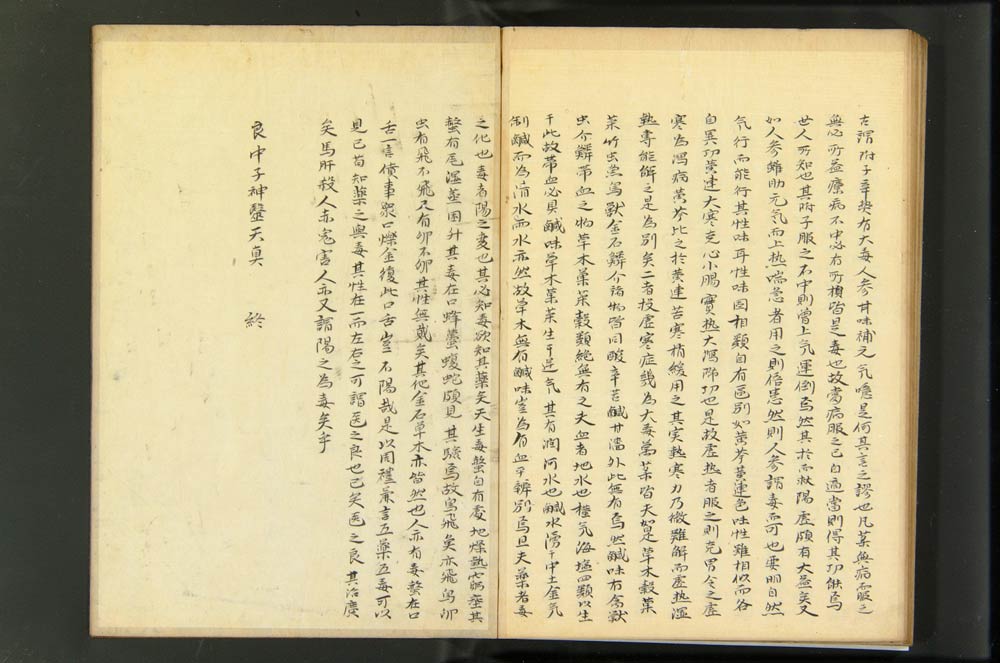 古謂附子辛熱有大毒人參甘味補元气噫是何其言之謬也凡藥無病而服之
無必所益療病不中必有所損皆是毒也故當病服之已自適當則得其功能焉
世人所知也其附子服之不中則曾上气運倒焉然其於而救陽虛頗有大益矣又
如人參雖助元气而上热喘急者用之則倍患然則人參謂毒而可也要明自然
气行而能行其性味耳性味固相類自有區別如黃芩黃連色味性雖相似而各
自異功黃連大寒克心小腸實热大瀉降功也是故虛热者服之則克胃令之虛
寒為瀉病黃芩比之於黃連苦寒稍緩用之其實熱寒力乃微難解而虛热濕
熱專能解之是為別矣二者投虛寒症幾為大毒第菜皆天智是草木穀菜
菜竹虫魚鳥獸金石鱗介諸物皆同酸辛苦鹹甘濇外此無有焉然鹹味有禽獸
虫介鱗帶血之物草木菓菜穀類絕無有之夫血者地水也種气海塩四類以生
于此故帶血必具鹹味草木菓菜生于逆气其有潤河水也鹹水滂于中土金气
制鹹而為清水雨水亦然故草木無有鹹味豈為有血乎辨別焉且夫藥者毒
之化也毒者陽之変也其必知毒欲知其藥矣天生毒螫自有處地燥熱
螫有尾濕蒸困升其毒在口蜂蠆蝮蛇頗見其驗焉故鳥飛矣亦飛鳥卵
虫有飛不飛又有卵不卵其性無戴矣其他金石草木亦皆然也人亦有毒螫在口
舌一言僨事眾口爍金復此口舌豈不陽哉是以周禮兼言五藥五毒可以
見已苟知藥之與毒其性在一而左右之可謂医之良也已矣医之良其治療
矣馬肝殺人亦冤害人亦又謂陽之為毒矣乎
良中子神醫天真　終